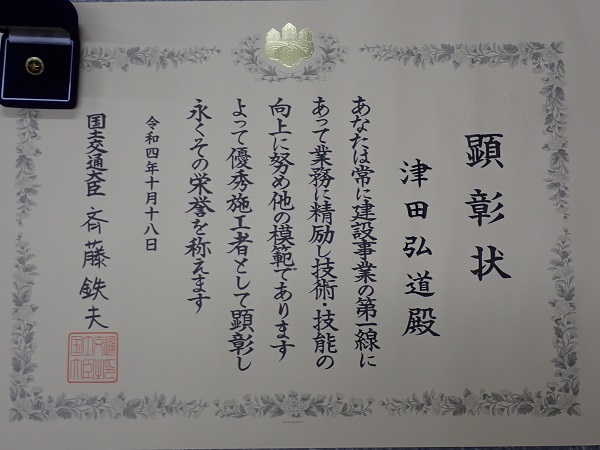 顕彰状
津田弘道殿
あなたは常に建設事業の第一線に
あって業務に精励し技術・技能の
向上に努め他の模範であります
よって優秀施工者として顕彰し
永くその栄誉を称えます
令和四年十月十八日
国土交通大臣 斉藤鉄夫
国土交通大臣印